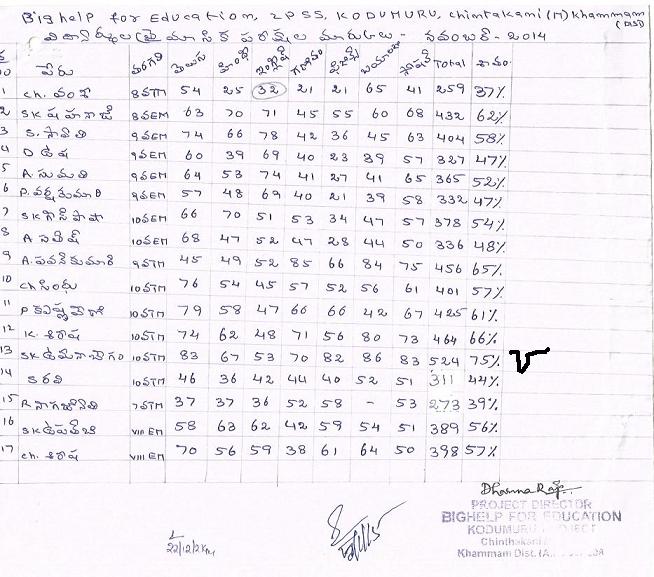 Bighelp for Education, ZPSS, KODUMURU, Chintakani (M) Khammam (Dist)
విద్యార్థుల త్రై మాసిక పరీక్షల మార్కులు - నవంబర్ - 2014
పేరు తరగతి తెలుగు హిందీ ఇంగ్లీష్ గణితం ఫిజిక్స్ బయాలజీ సోషల్ Total శాతం
1 Ch. వంశీ 8వTM 54 25 32 21 21 65 41 259 37%
2 SK షహనాజ్ 8వEM 63 70 71 45 55 60 68 432 62%
3 S. 9వEM 74 66 78 42 36 45 63 404 58%
4 D ఉష 9వEM 60 39 69 40 23 39 57 327 47%
5 A. సుమతి 9వEM 64 53 74 41 27 41 65 365 52%
6 P. 9వEM 57 48 69 40 21 39 58 332 47%
7 SK 10వEM 66 70 51 53 34 47 57 378 54%
8 A 10వEM 68 47 52 47 28 44 50 336 48%
9 A. పవన్ కుమారి 9వTM 45 49 52 85 66 84 75 456 65%
10 Ch సింధు 10వTM 76 54 45 57 52 56 61 401 57%
11 P 10వTM 79 58 47 66 66 42 67 425 61%
12 K. శిరీష 10వTM 74 62 48 71 56 80 73 464 66%
13 SK 10వTM 83 67 53 70 82 86 83 524 75%
14 S రవి 10వTM 46 36 42 44 40 52 51 311 44%
15 R. నాగజ్యోతి 7వTM 37 37 36 52 58 - 53 273 39%
16 SK VIII EM 58 63 62 42 59 54 51 389 56%
17 Ch. శిరీష VIII EM 70 56 59 38 61 64 50 398 57%
Dharma Raju
PROJECT DIRECTOR
BIGHELP FOR EDUCATION
KODUMURU PROJECT
Chinthakani
Khammam Dist.